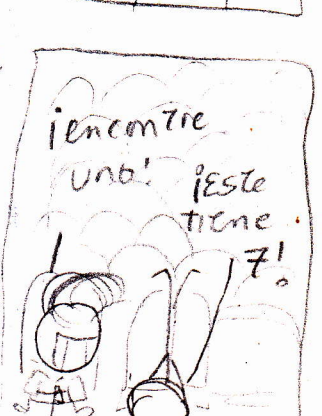 ¡encontre
uno!
¡Este
tiene
7!